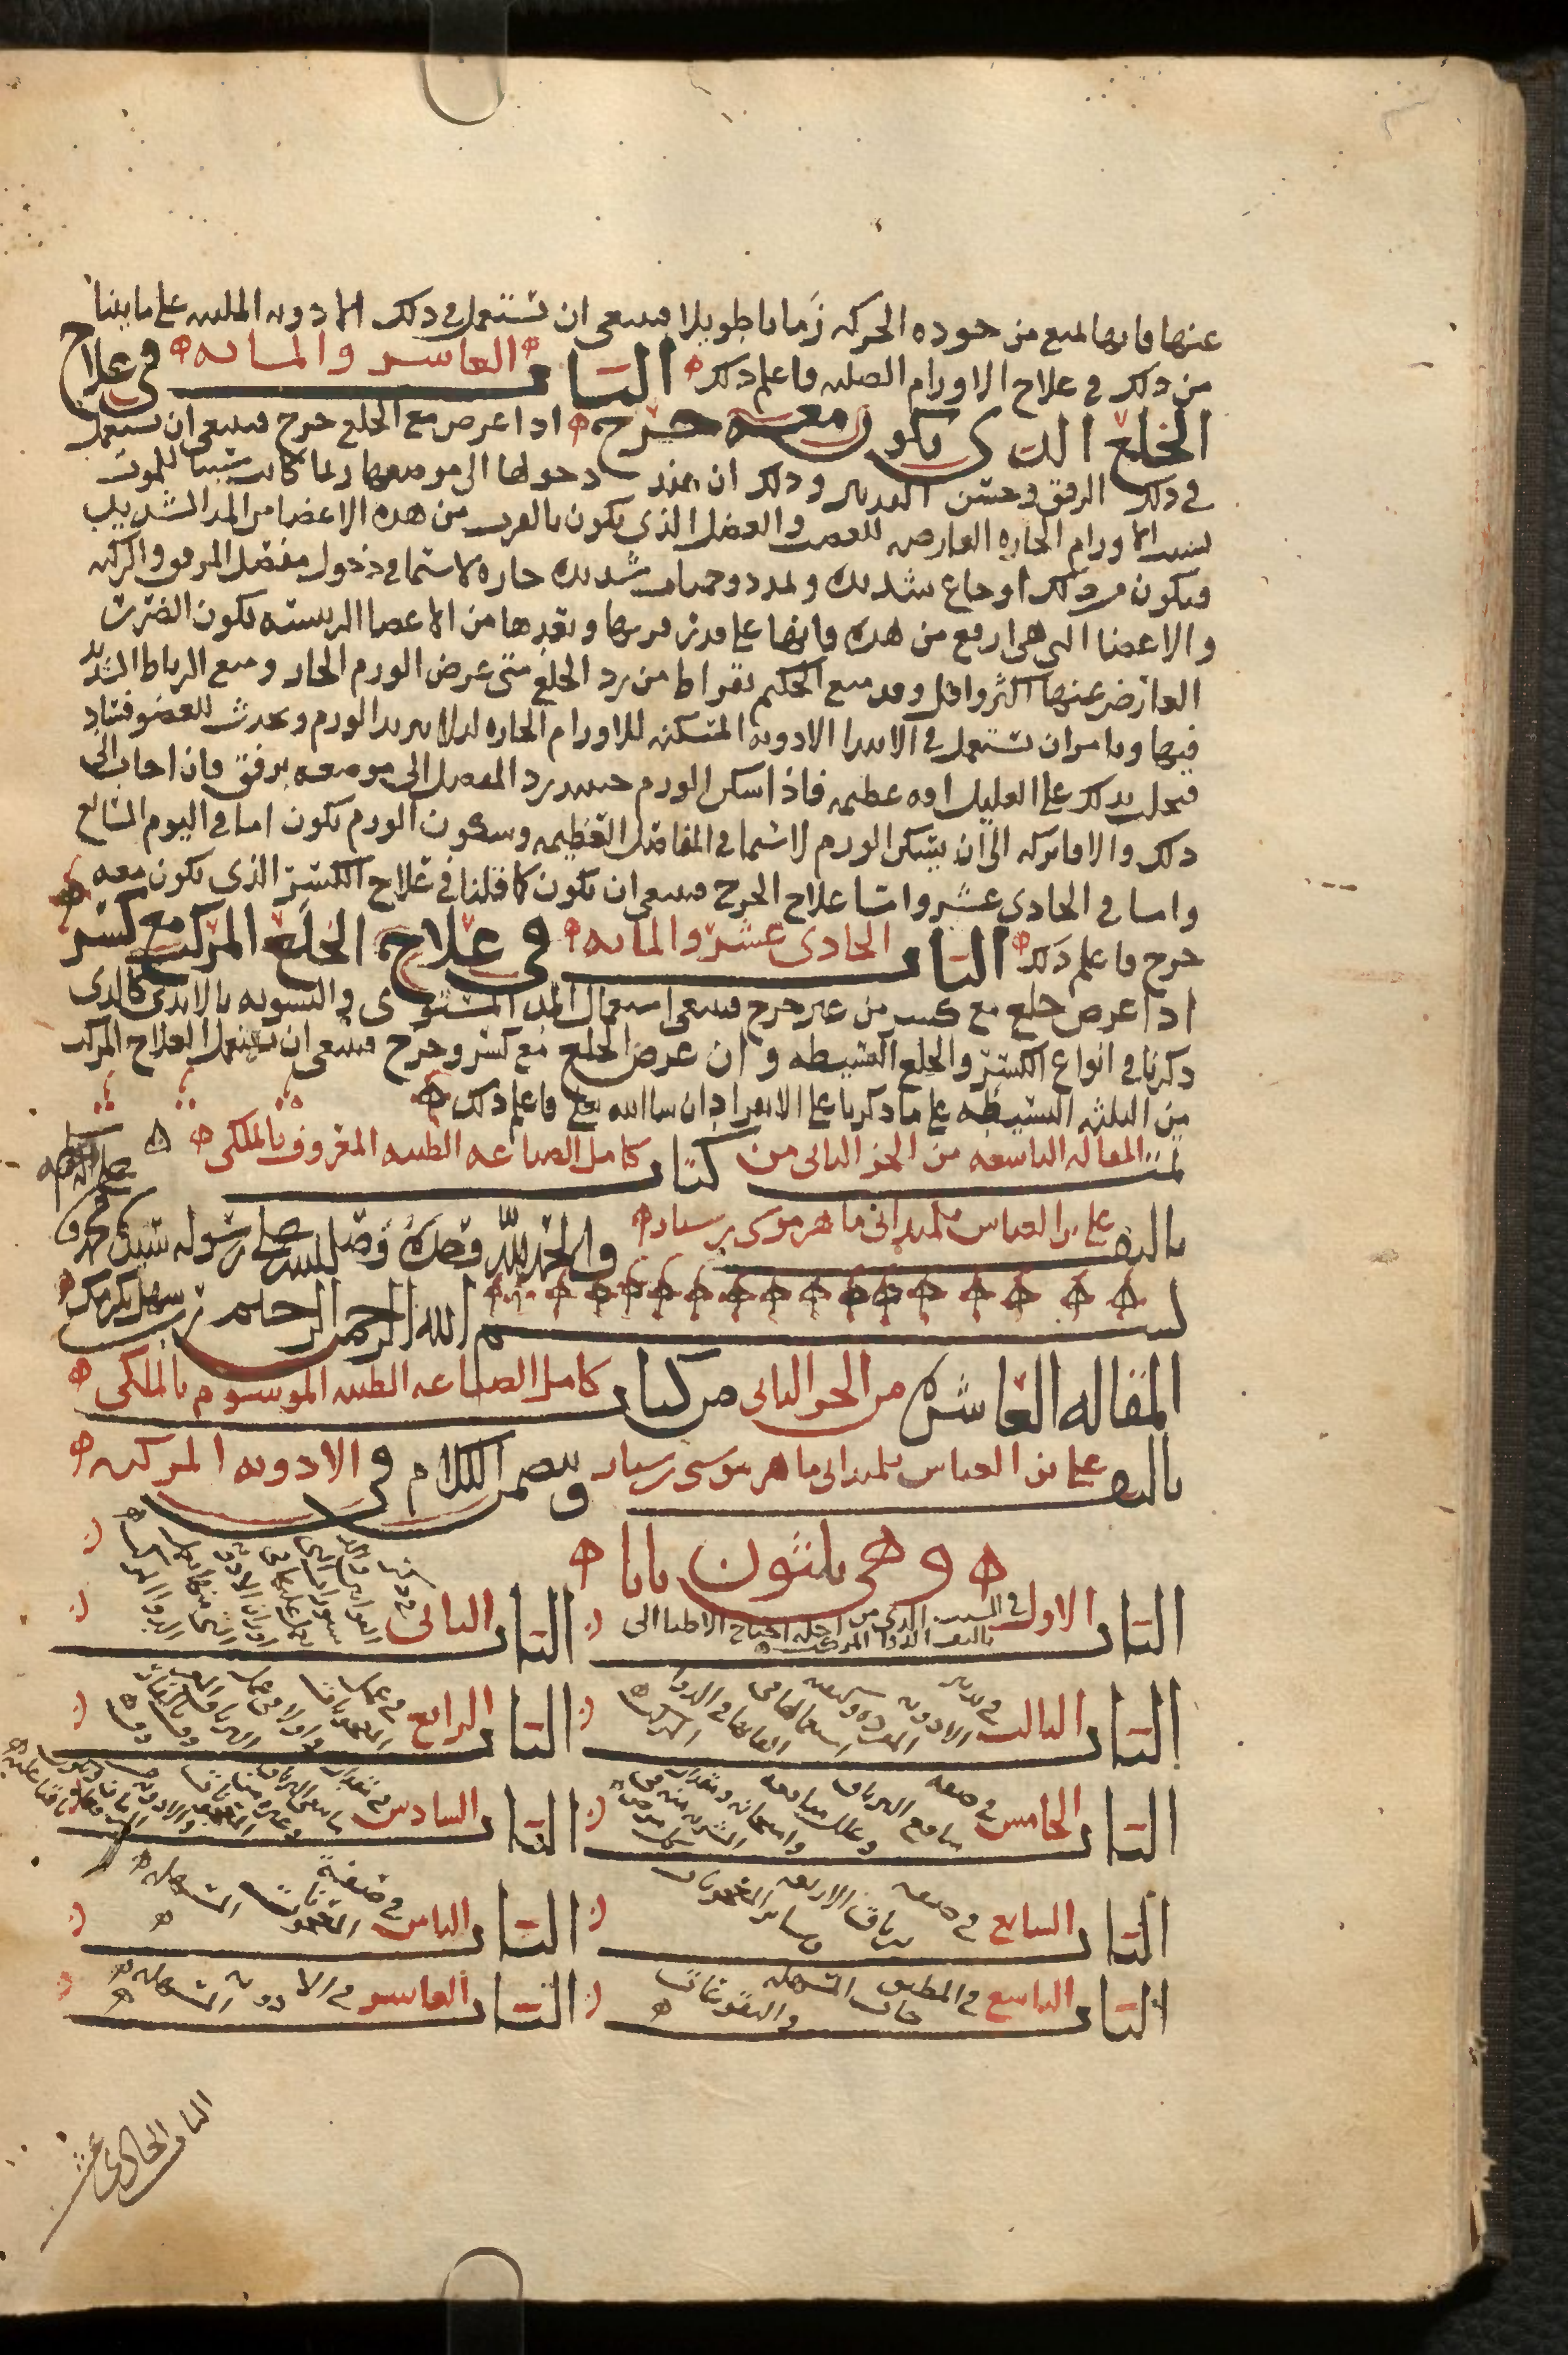 عنها فانها تمنع من جوده الحركه زمانا طويلا فينبغى ان تستعمل فى ذلك الادويه الملينه على ما بينا
من ذلك فى علاج الاورام الصلبه فاعلم ذلك الباب العاشر والمائه فى علاج
الخلع الذى يكون معه جرح اذا عرض مع الخلع جرح فينبغى ان تستعمل
فى ذلك الرفق وحسن التدبير وذلك ان عند دخولها الى موضعها ربما كانت سببا للموت
بسبب الاورام الحاره العارضه للعصب والعضل الذى يكون بالقرب من هذه الاعضا من المد الشديد
فيكون من ذلك اوجاع شديده وتمدد وحميات شديده حاره لا سيما فى دخول مفصل المرفق والركبه
والاعضا التى هى ارفع من هذه فانها على قدر قربها وبعدها من الاعضا الرييسه يكون الضرر
العارض عنها اكثر واقل وقد منع الحكيم بقراط من رد الخلع متى عرض الورم الحار ومنع الرباط الشديد
فيها ويامر ان تستعمل فى الابتدا الادويه المسكنه للاورام الحاره ليلا يتزيد الورم ويحدث للعضو فساد
فيحل بذلك على العليل افه عظيمه فاذا سكن الورم حينيذ يرد المفصل الى موضعه برفق فان اجاب الى
ذلك والا فاتركه الى ان يسكن الورم لا سيما فى المفاصل العظيمه وسكون الورم يكون اما فى اليوم السابع
واما فى الحادى عشر واما علاج الجرح فينبغى ان يكون كما قلنا فى علاج الكسر الذى يكون معه
جرح فاعلم ذلك الباب الحادى عشر والمائه فى علاج الخلع المركب مع كسر
اذا عرض خلع مع كسر من غير جرح فينبغى استعمال المد المستوى والتسويه بالايدى كالذى
ذكرنا فى انواع الكسر والخلع البسيطه وان عرض الخلع مع كسر وجرح فينبغى ان تستعمل العلاج المركب
من الثلثه البسيطه على ما ذكرنا على الانفراد ان شا الله تعالى فاعلم ذلك
تمت المقاله التاسعه من الجز الثانى من كتاب كامل الصناعه الطبيه المعروف بالملكى
تاليف على بن العباس تلميذ ابى ماهر موسى بن سيار والحمد لله وحده وصلى الله على رسوله سيدنا محمد
بسم الله الرحمن الرحيم رب سهل بكرمك
المقاله العاشره من الجز الثانى من كتاب كامل الصناعه الطبيه الموسوم بالملكى
تاليف على بن العباس تلميذ ابى ماهر موسى بن سيار ويتضمن الكلام فى الادويه المركبه
وهى ثلثون بابا
الباب الاول فى السبب الذى من اجله احتاج الاطبا الى تاليف الدوا المركب الباب الثانى
الباب الثالث فى تدبير الادويه المفرده وكيفيه استعمالها فى القايها فى الدوا المركب الباب الرابع فى عمل المعجونات
الباب الخامس فى صفه منافع الترياق وعلل منافعه وامتحانه ومقدار الشربه منه فى كل مرض الباب السادس فى مقدار
الباب السابع فى صفه ترياق الاربعه وساير المعجونات الباب الثامن فى صفة المعجونات المسهله
الباب التاسع فى المطبوخات المسهله والنقوعات الباب العاشر فى الادويه المسهله
الباب الحادى عشر